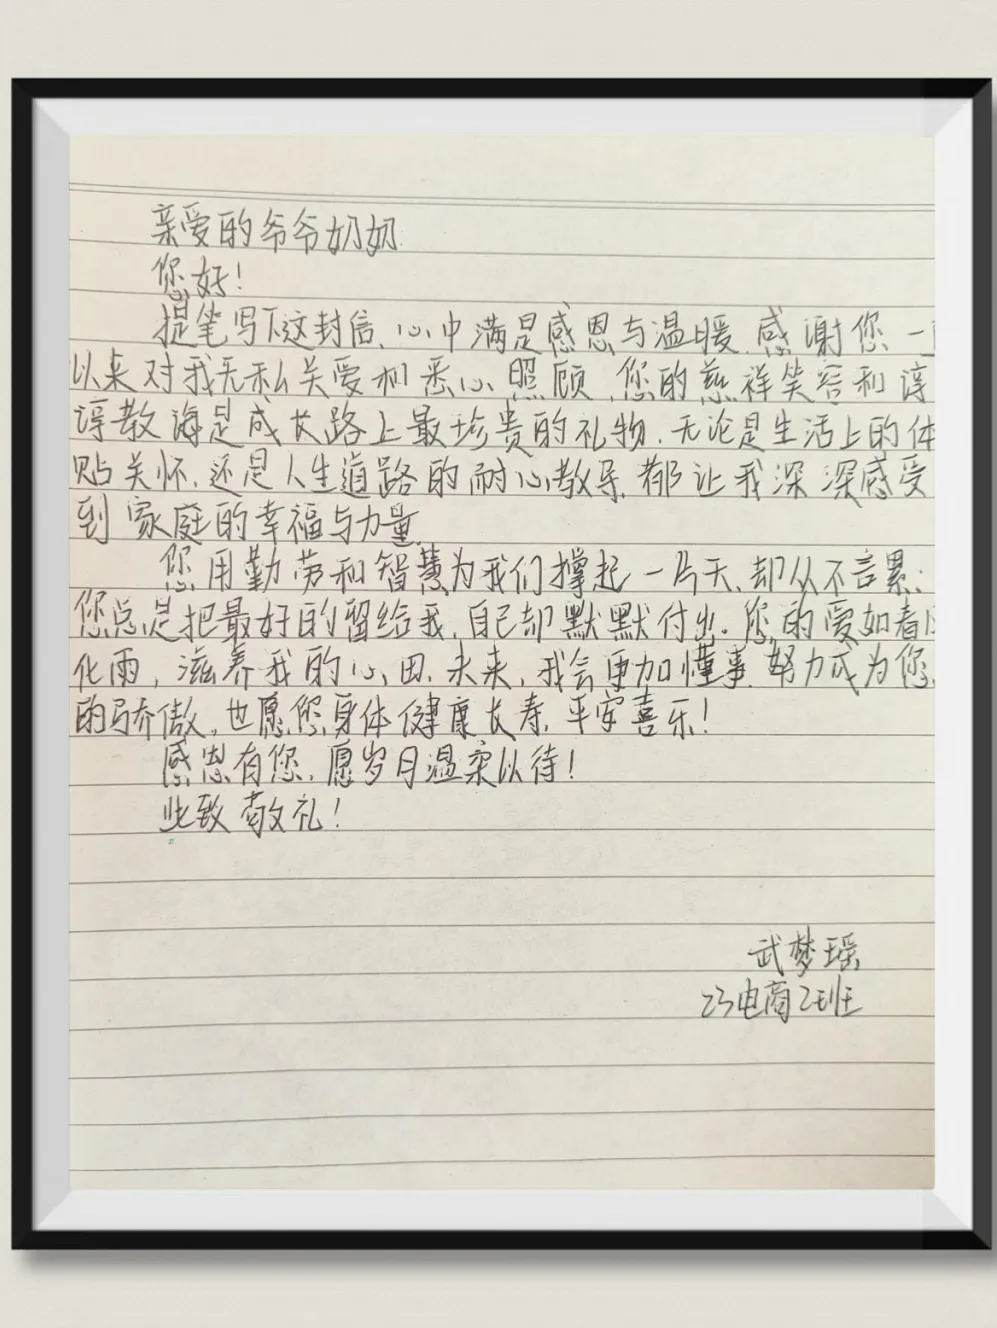 亲爱的爷爷奶奶
您好!
提笔写下这封信,心中满是感恩与温暖,感谢您一
以来对我无私关爱和悉心照顾,您的慈祥笑容和谆
谆教诲是成长路上最珍贵的礼物,无论是生活上的体
贴关怀,还是人生道路的耐心教导,都让我深深感受
到家庭的幸福与力量,
您用勤劳和智慧为我们撑起一片天,却从不言累;
您总是把最好的留给我,自己却默默付出。您的爱如春
化雨,滋养我的心田,未来,我会更加懂事,努力成为您
的骄傲,也愿您身体健康长寿,平安喜乐!
感恩有您,愿岁月温柔以待!
此致敬礼!
武梦瑶
23电商2班